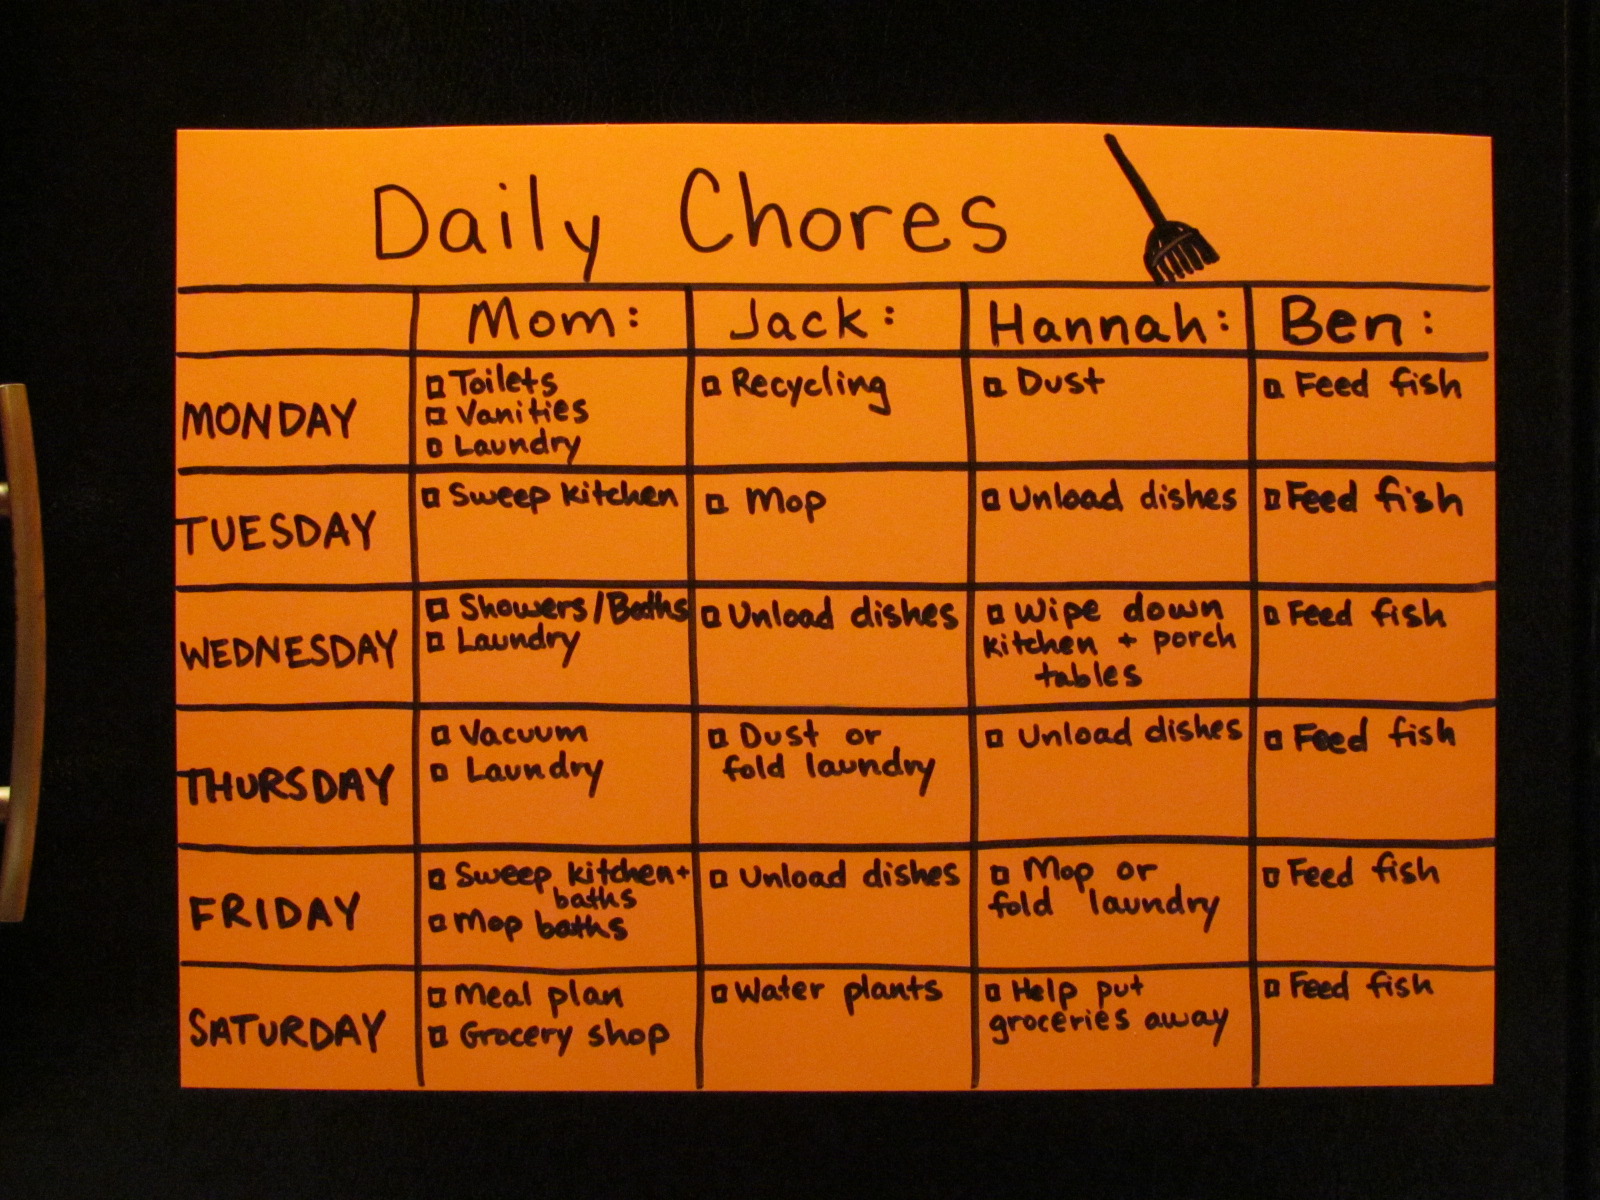 Daily Chores
Mom: Jack: Hannah: Ben:
MONDAY
Toilets
Vanities
Laundry
Recycling
Dust
Feed fish
TUESDAY
Sweep kitchen
Mop
Unload dishes
Feed fish
WEDNESDAY
Showers/Baths
Laundry
Unload dishes
Wipe down
kitchen + porch
tables
Feed fish
THURSDAY
Vacuum
Laundry
Dust or
fold laundry
Unload dishes
Feed fish
FRIDAY
Sweep kitchen+
baths
Mop baths
Unload dishes
Mop or
fold laundry
Feed fish
SATURDAY
Meal plan
Grocery shop
Water plants
Help put
groceries away
Feed fish